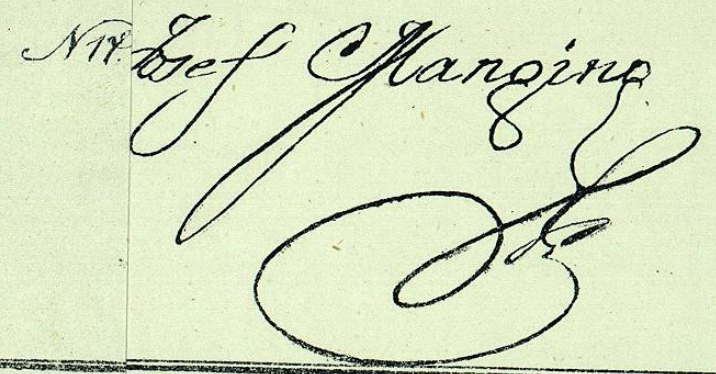 N 14. Josef Mangino